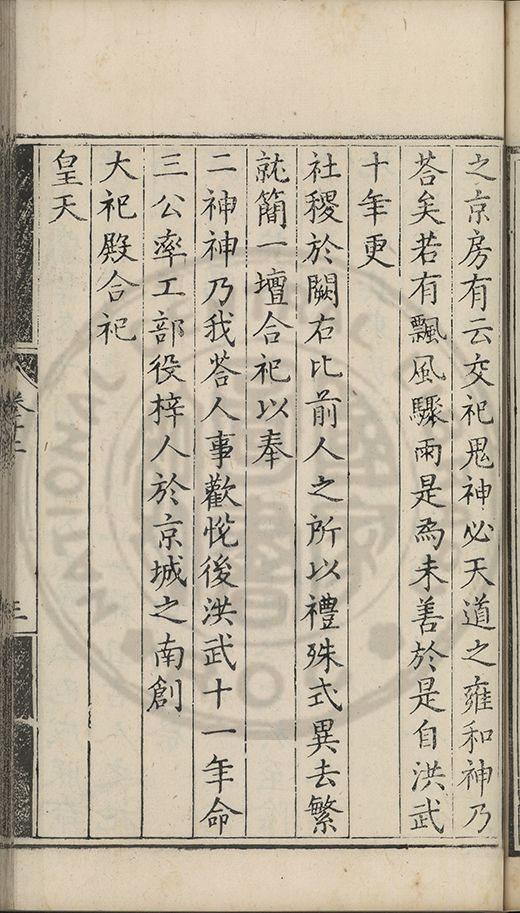 之京房有云交祀鬼神必天道之雍和神乃
荅矣若有飄風驟雨是爲未善於是自洪武
十年更
社稷於闕右比前人之所以禮殊式異去繁
就簡一壇合祀以奉
二神神乃我荅人事歡悅後洪武十一年命
三公率工部役梓人於京城之南創
大祀殿合祀
皇天
卷十二
三